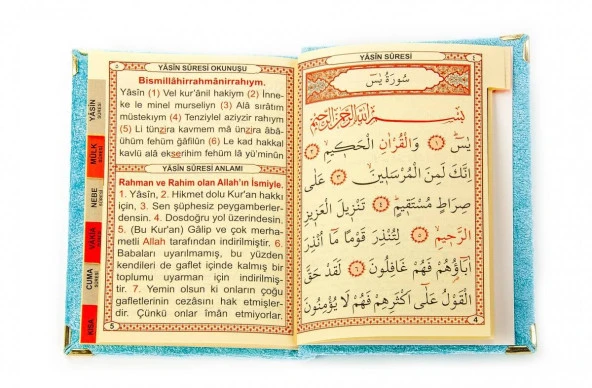 YÂSİN SÛRESİ OKUNUŞU
Bismillâhirrahmânirrahıym.
Yâsîn (1) Vel kur'ânil hakiym (2) İnne-
ke le minel murseliyn (3) Alâ sırâtım
müstekıym (4) Tenziylel aziyzir rahıym
(5) Li tünzira kavmem mâ ünzira âbâ-
ühüm fehüm gâfilûn (6) Le kad hakkal
kavlü alâ ekserihim fehüm lâ yü'minûn
YÂSİN SÛRESİ ANLAMI
Rahman ve Rahim olan Allah'ın İsmiyle.
1. Yâsîn, 2. Hikmet dolu Kur'an hakkı
için, 3. Sen şüphesiz peygamberler-
densin. 4. Dosdoğru yol üzerindesin.
5. (Bu Kur'an) Gâlip ve çok merha-
metli Allah tarafından indirilmiştir. 6.
Babaları uyarılmamış, bu yüzden
kendileri de gaflet içinde kalmış bir
toplumu uyarman için indirilmiş-
tir. 7. Yemin olsun ki onların çoğu
gafletlerinin cezâsını hak etmişler-
dir. Çünkü onlar îmân etmiyorlar.
5
YÂSİN
SÛRESİ
MÜLK
SÛRESİ
NEBE
SÛRESİ
VÂKIA
SÛRESİ
CUMA
SÛRESİ
KISA
YÂSİN SÛRESİ
سُورَةُ يٰسٓ
بِسْمِ اللّٰهِ الرَّحْمٰنِ الرَّحِيمِ
يٰسٓ ﴿١﴾ وَالْقُرْاٰنِ الْحَكِيمِ ﴿٢﴾
اِنَّكَ لَمِنَ الْمُرْسَلِينَ ﴿٣﴾ عَلٰى
صِرَاطٍ مُسْتَقِيمٍ ﴿٤﴾ تَنْزِيلَ الْعَزِيزِ
الرَّحِيمِ ﴿٥﴾ لِتُنْذِرَ قَوْمًا مَٓا اُنْذِرَ
اٰبَٓاؤُهُمْ فَهُمْ غَافِلُونَ ﴿٦﴾ لَقَدْ حَقَّ
الْقَوْلُ عَلٰٓى اَكْثَرِهِمْ فَهُمْ لَا يُؤْمِنُونَ
4